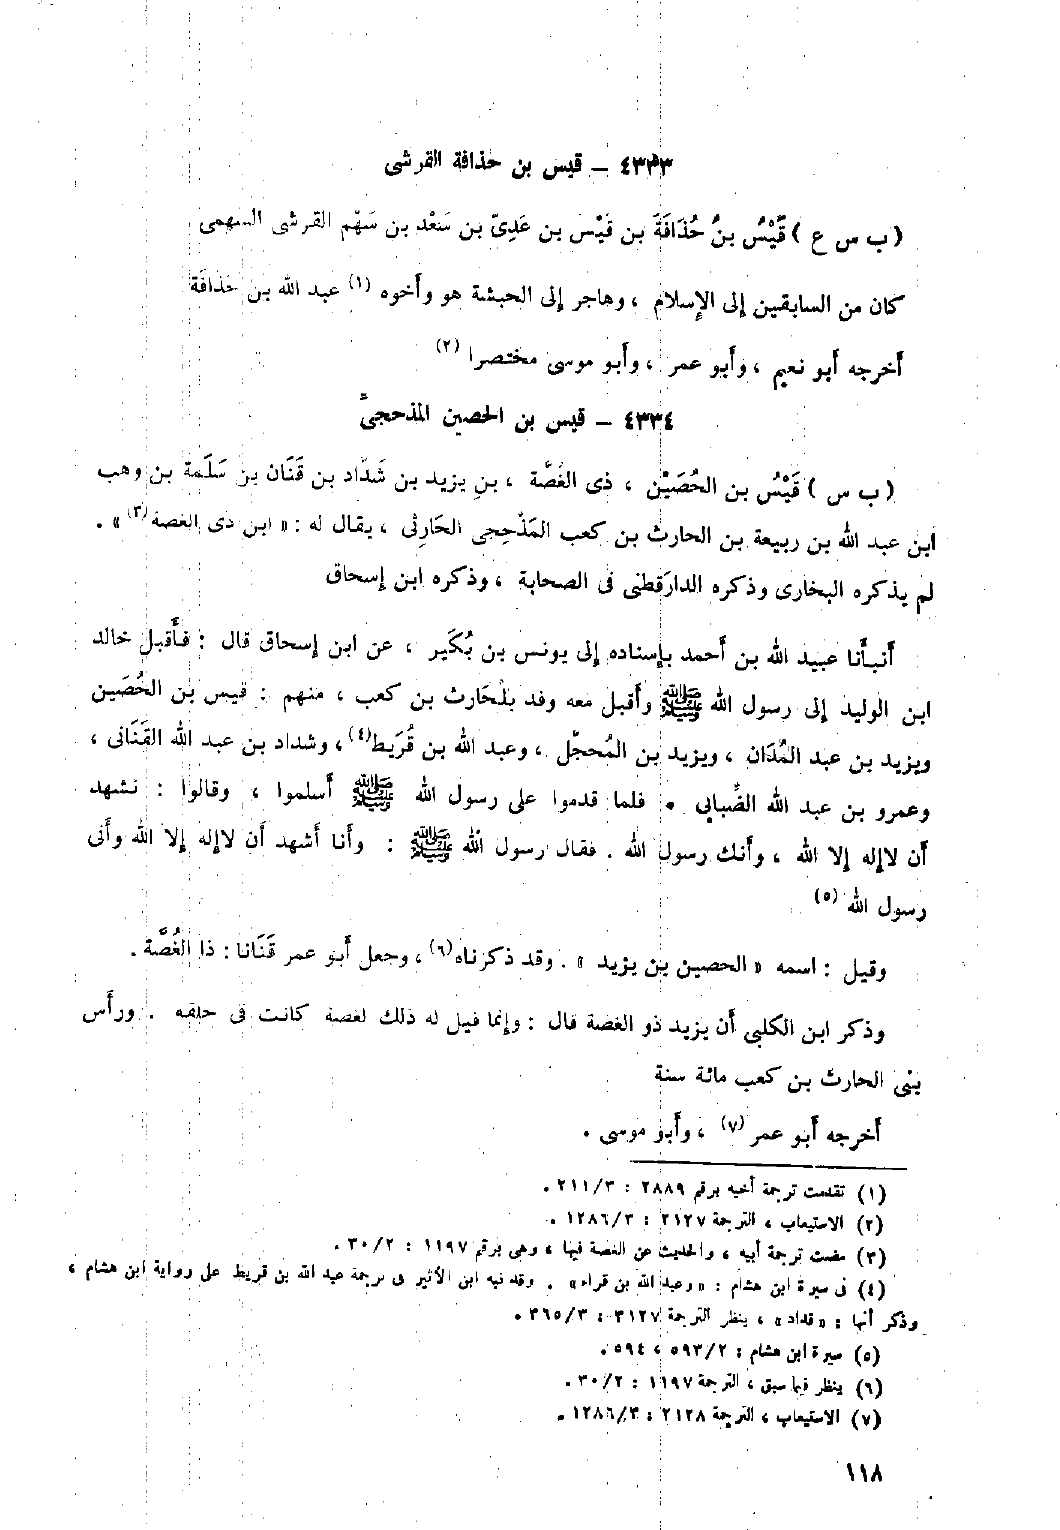 ٤٣٣٣ – قيس بن حذافة القرشى
( ب س ع ) قَيْسُ بنُ حُذَافَةَ بن قَيْس بن عَدِىّ بن سَعْد بن سَهْم القرشى السهمى
كان من السابقين إلى الإسلام ، وهاجر إلى الحبشة هو وأخوه (١) عبد الله بن حذافَة
أخرجه أبو نعيم ، وأبو عمر ، وأبو موسى مختصرا (٢)
٤٣٣٤ – قيس بن الحصين المذحجىّ
( ب س ) قَيْسُ بن الحُصَيْن ، ذى الغُصَّة ، بنِ يزيد بن شَدَّاد بن قَنَان بن سَلَمة بن وهب
ابن عبد الله بن ربيعة بن الحارث بن كعب المَذْحِجى الحَارِثى ، يقال له : « ابن ذى الغصة (٣) » .
لم يذكره البخارى وذكره الدارَقطنى فى الصحابة ، وذكره ابن إسحاق
أنبأنا عبيد الله بن أحمد بإسناده إلى يونس بن بُكَير ، عن ابن إسحاق قال : فأقبل خالد
ابن الوليد إلى رسول الله ﷺ وأقبل معه وفد بلْحَارث بن كعب ، منهم : قيس بن الحُصَين
ويزيد بن عبد المُدَان ، ويزيد بن المُحجَّل ، وعبد الله بن قُرَيط (٤) ، وشداد بن عبد الله القَنَانى ،
وعمرو بن عبد الله الضِّبابى . فلما قدموا على رسول الله ﷺ أسلموا ، وقالوا : نشهد
أن لاإله إلا الله ، وأنك رسول الله . فقال رسول الله ﷺ : وأنا أشهد أن لاإله إلا الله وأنى
رسول الله (٥)
وقيل : اسمه « الحصين بن يزيد » . وقد ذكرناه (٦) ، وجعل أبو عمر قَنَانا : ذا الغُصَّة .
وذكر ابن الكلبى أن يزيد ذو الغصة قال : وإنما قيل له ذلك لغصة كانت فى حلقه . ورأس
بنى الحارث بن كعب مائة سنة
أخرجه أبو عمر (٧) ، وأبو موسى .
(١) تقدمت ترجمة أخيه برقم ٢٨٨٩ : ٢١١/٣ .
(٢) الاستيعاب ، الترجمة ٢١٢٧ : ١٢٨٦/٣ .
(٣) مضت ترجمة أبيه ، والحديث عن الغصة فيها ، وهى برقم ١١٩٧ : ٣٠/٢ .
(٤) فى سيرة ابن هشام : « وعبد الله بن قراد » . وقد نبه ابن الأثير فى ترجمة عبد الله بن قريط على رواية ابن هشام ،
وذكر أنها : « قداد » ، ينظر الترجمة ٣١٢٧ : ٣٦٥/٣ .
(٥) سيرة ابن هشام : ٥٩٣/٢ ، ٥٩٤ .
(٦) ينظر فيما سبق ، الترجمة ١١٩٧ : ٣٠/٢ .
(٧) الاستيعاب ، الترجمة ٢١٢٨ : ١٢٨٦/٣ .
١١٨